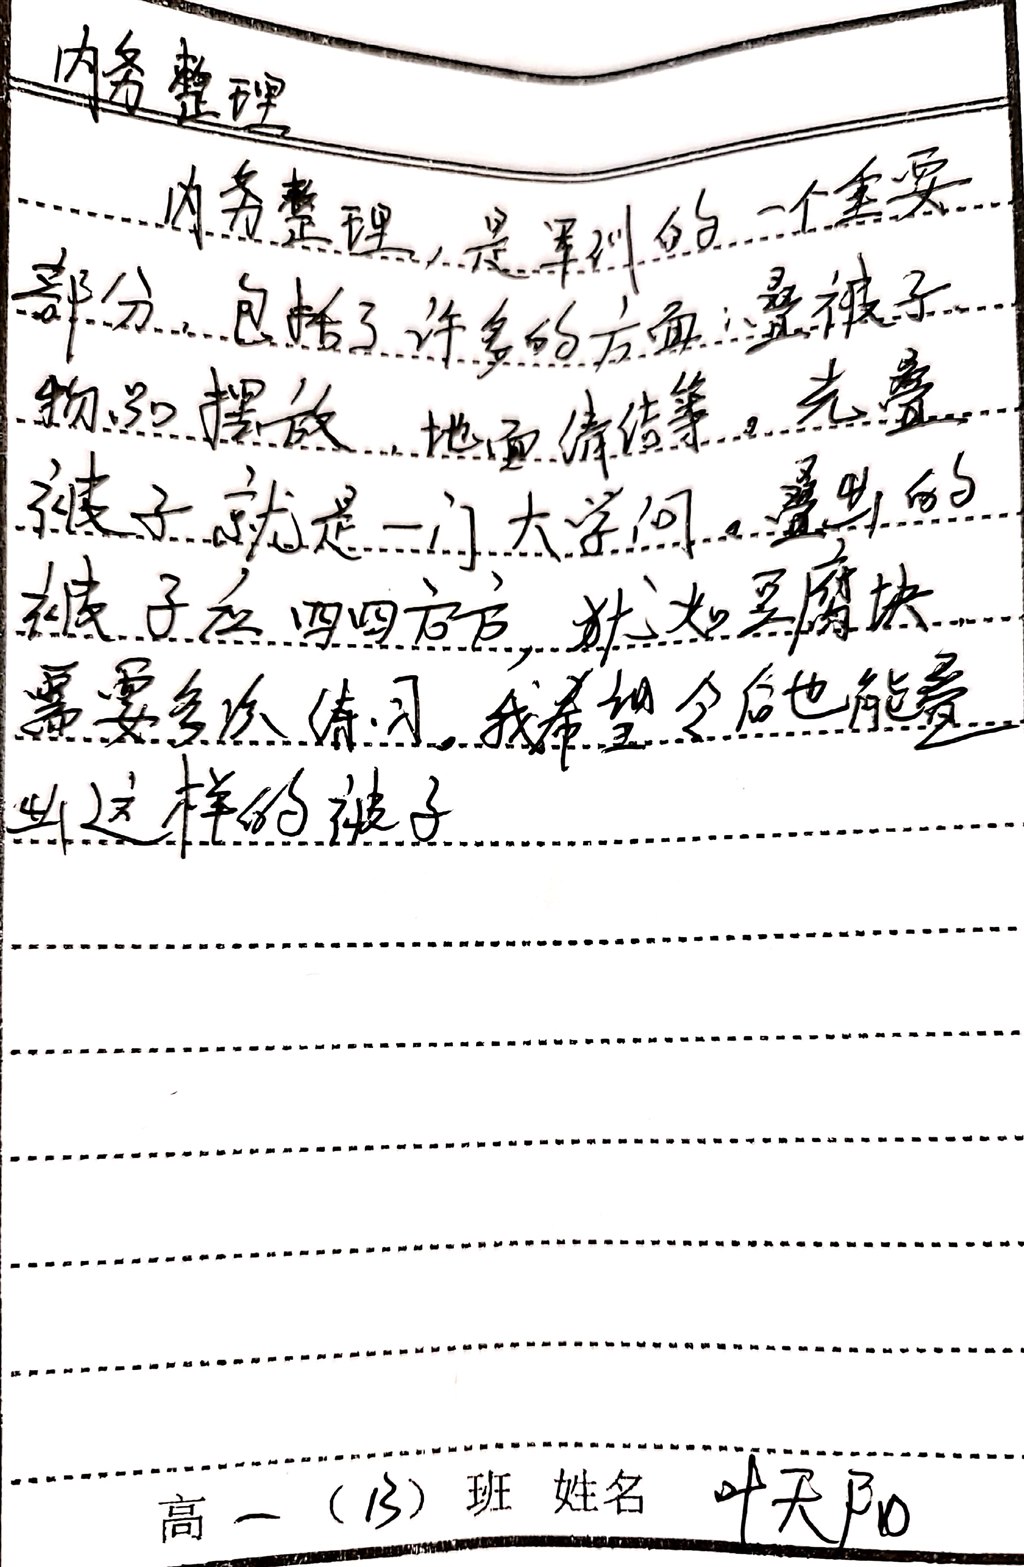 内务整理
内务整理,是军训的一个重要
部分,包括了许多的方面:叠被子、
物品摆放、地面清洁等。光叠
被子就是一门大学问。叠出的
被子应四四方方,犹如豆腐块,
需要多次练习。我希望今后也能叠
出这样的被子
高一(13)班 姓名 叶天阳